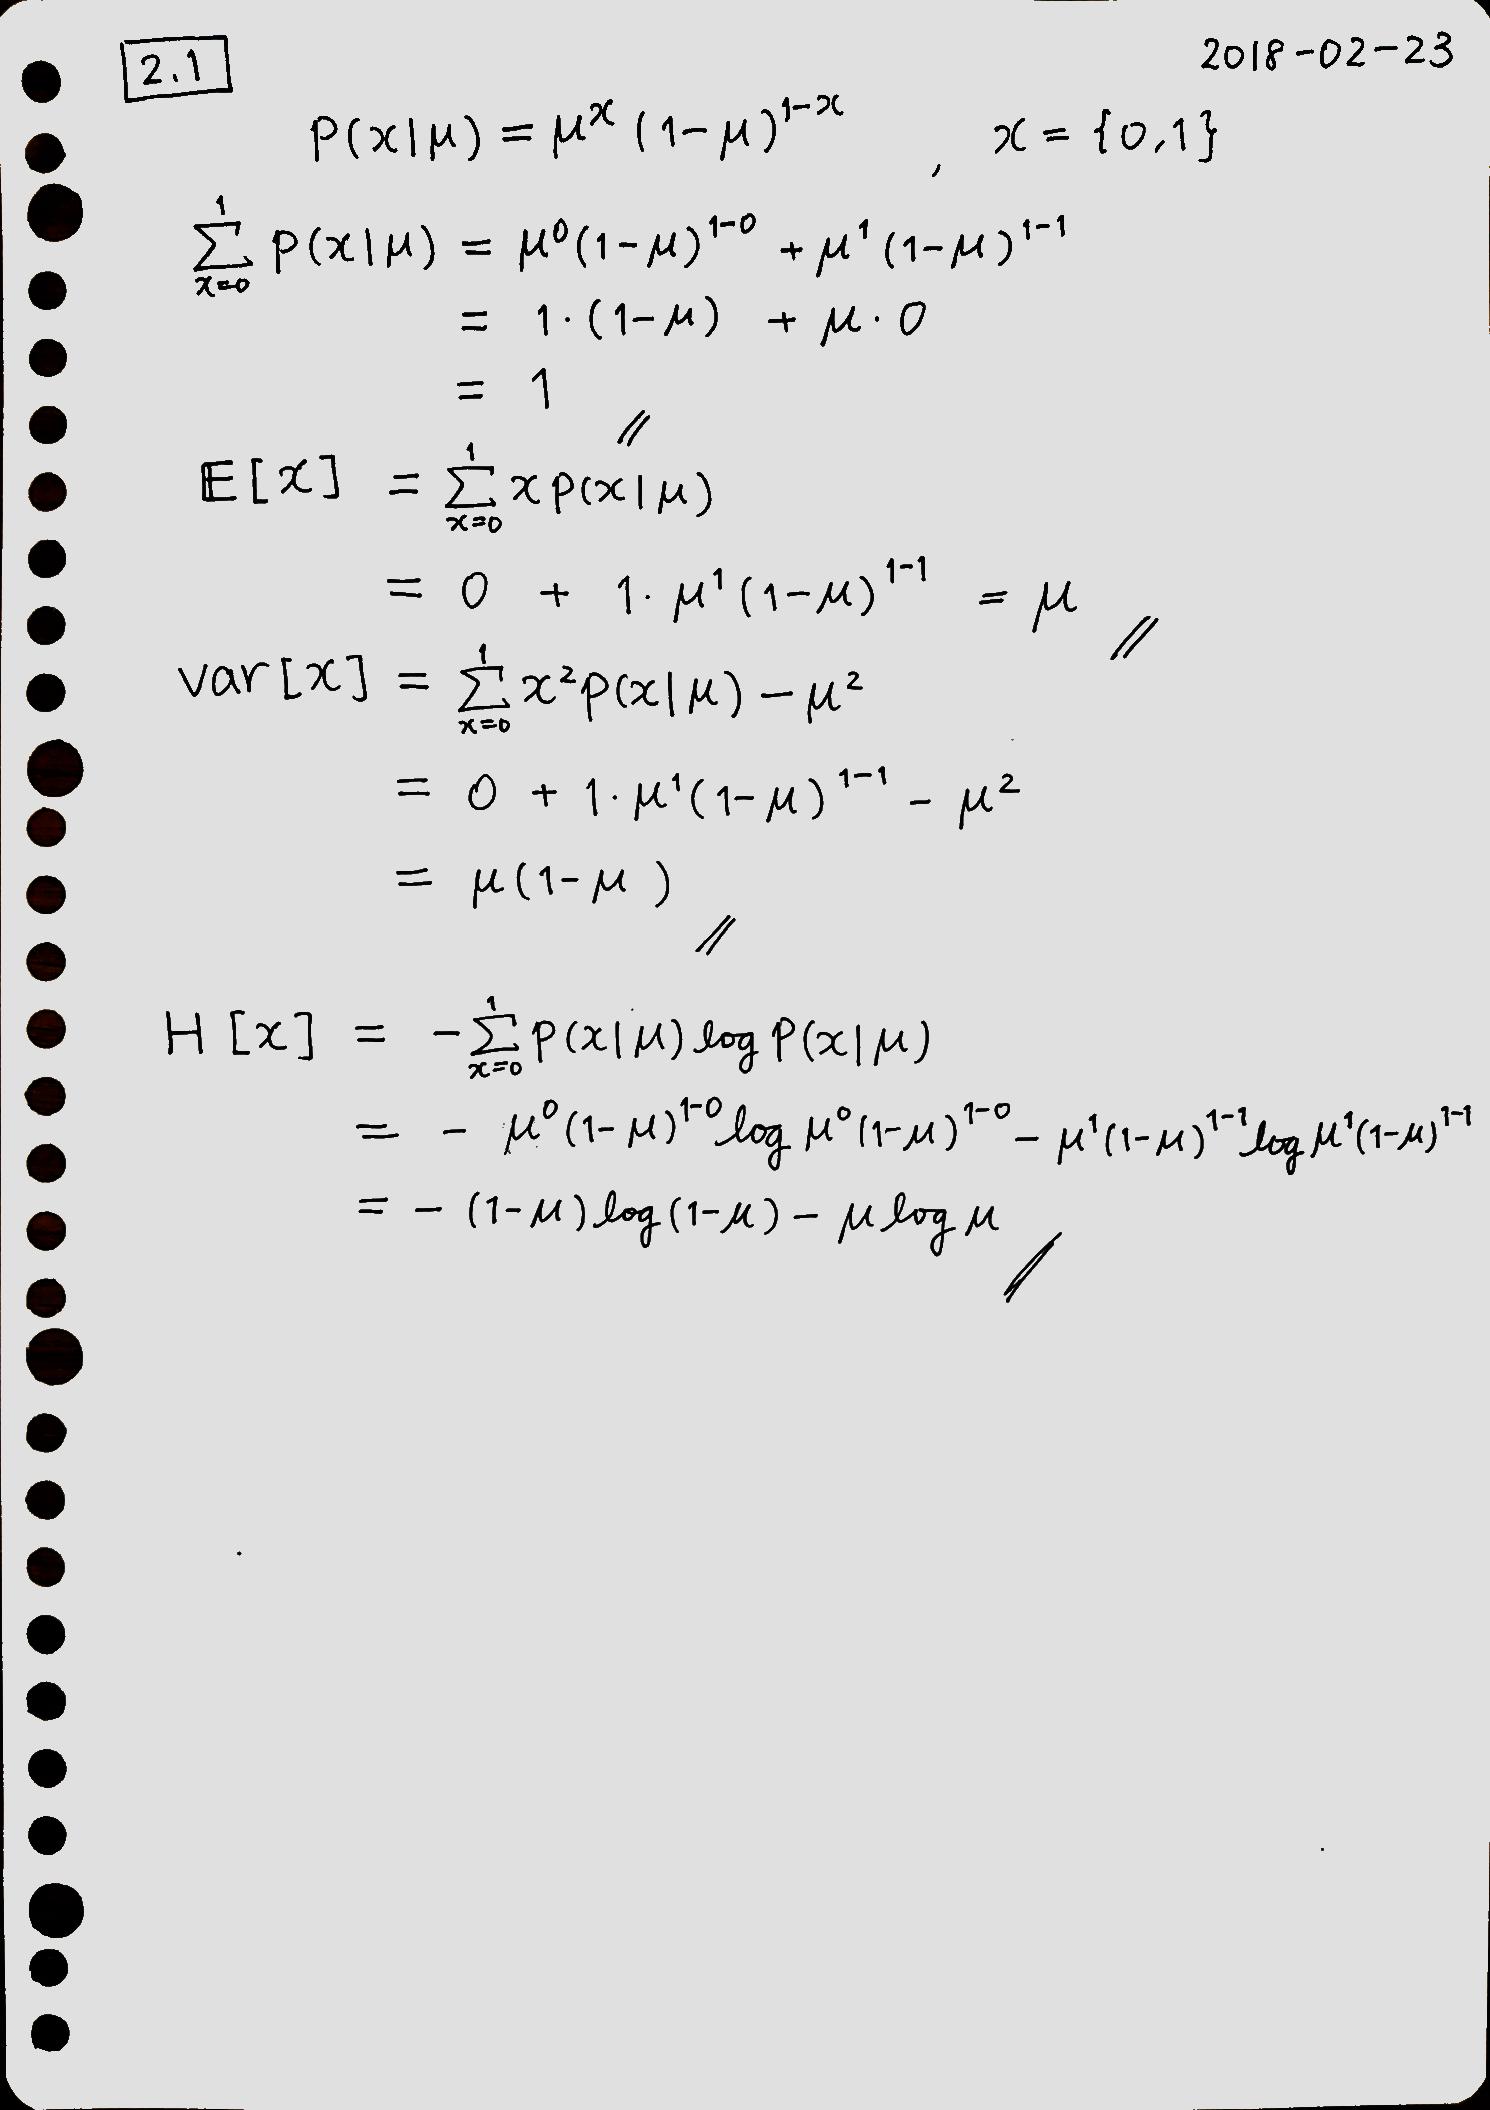 2.1 2018-02-23
P(x|μ) = μ^x (1-μ)^{1-x} , x = {0,1}
∑_{x=0}^{1} P(x|μ) = μ^0(1-μ)^{1-0} + μ^1(1-μ)^{1-1}
= 1·(1-μ) + μ·0
= 1 //
𝔼[x] = ∑_{x=0}^{1} x P(x|μ)
= 0 + 1·μ^1(1-μ)^{1-1} = μ //
var[x] = ∑_{x=0}^{1} x^2 P(x|μ) - μ^2
= 0 + 1·μ^1(1-μ)^{1-1} - μ^2
= μ(1-μ) //
H[x] = -∑_{x=0}^{1} P(x|μ) log P(x|μ)
= - μ^0(1-μ)^{1-0} log μ^0(1-μ)^{1-0} - μ^1(1-μ)^{1-1} log μ^1(1-μ)^{1-1}
= - (1-μ) log(1-μ) - μ log μ //